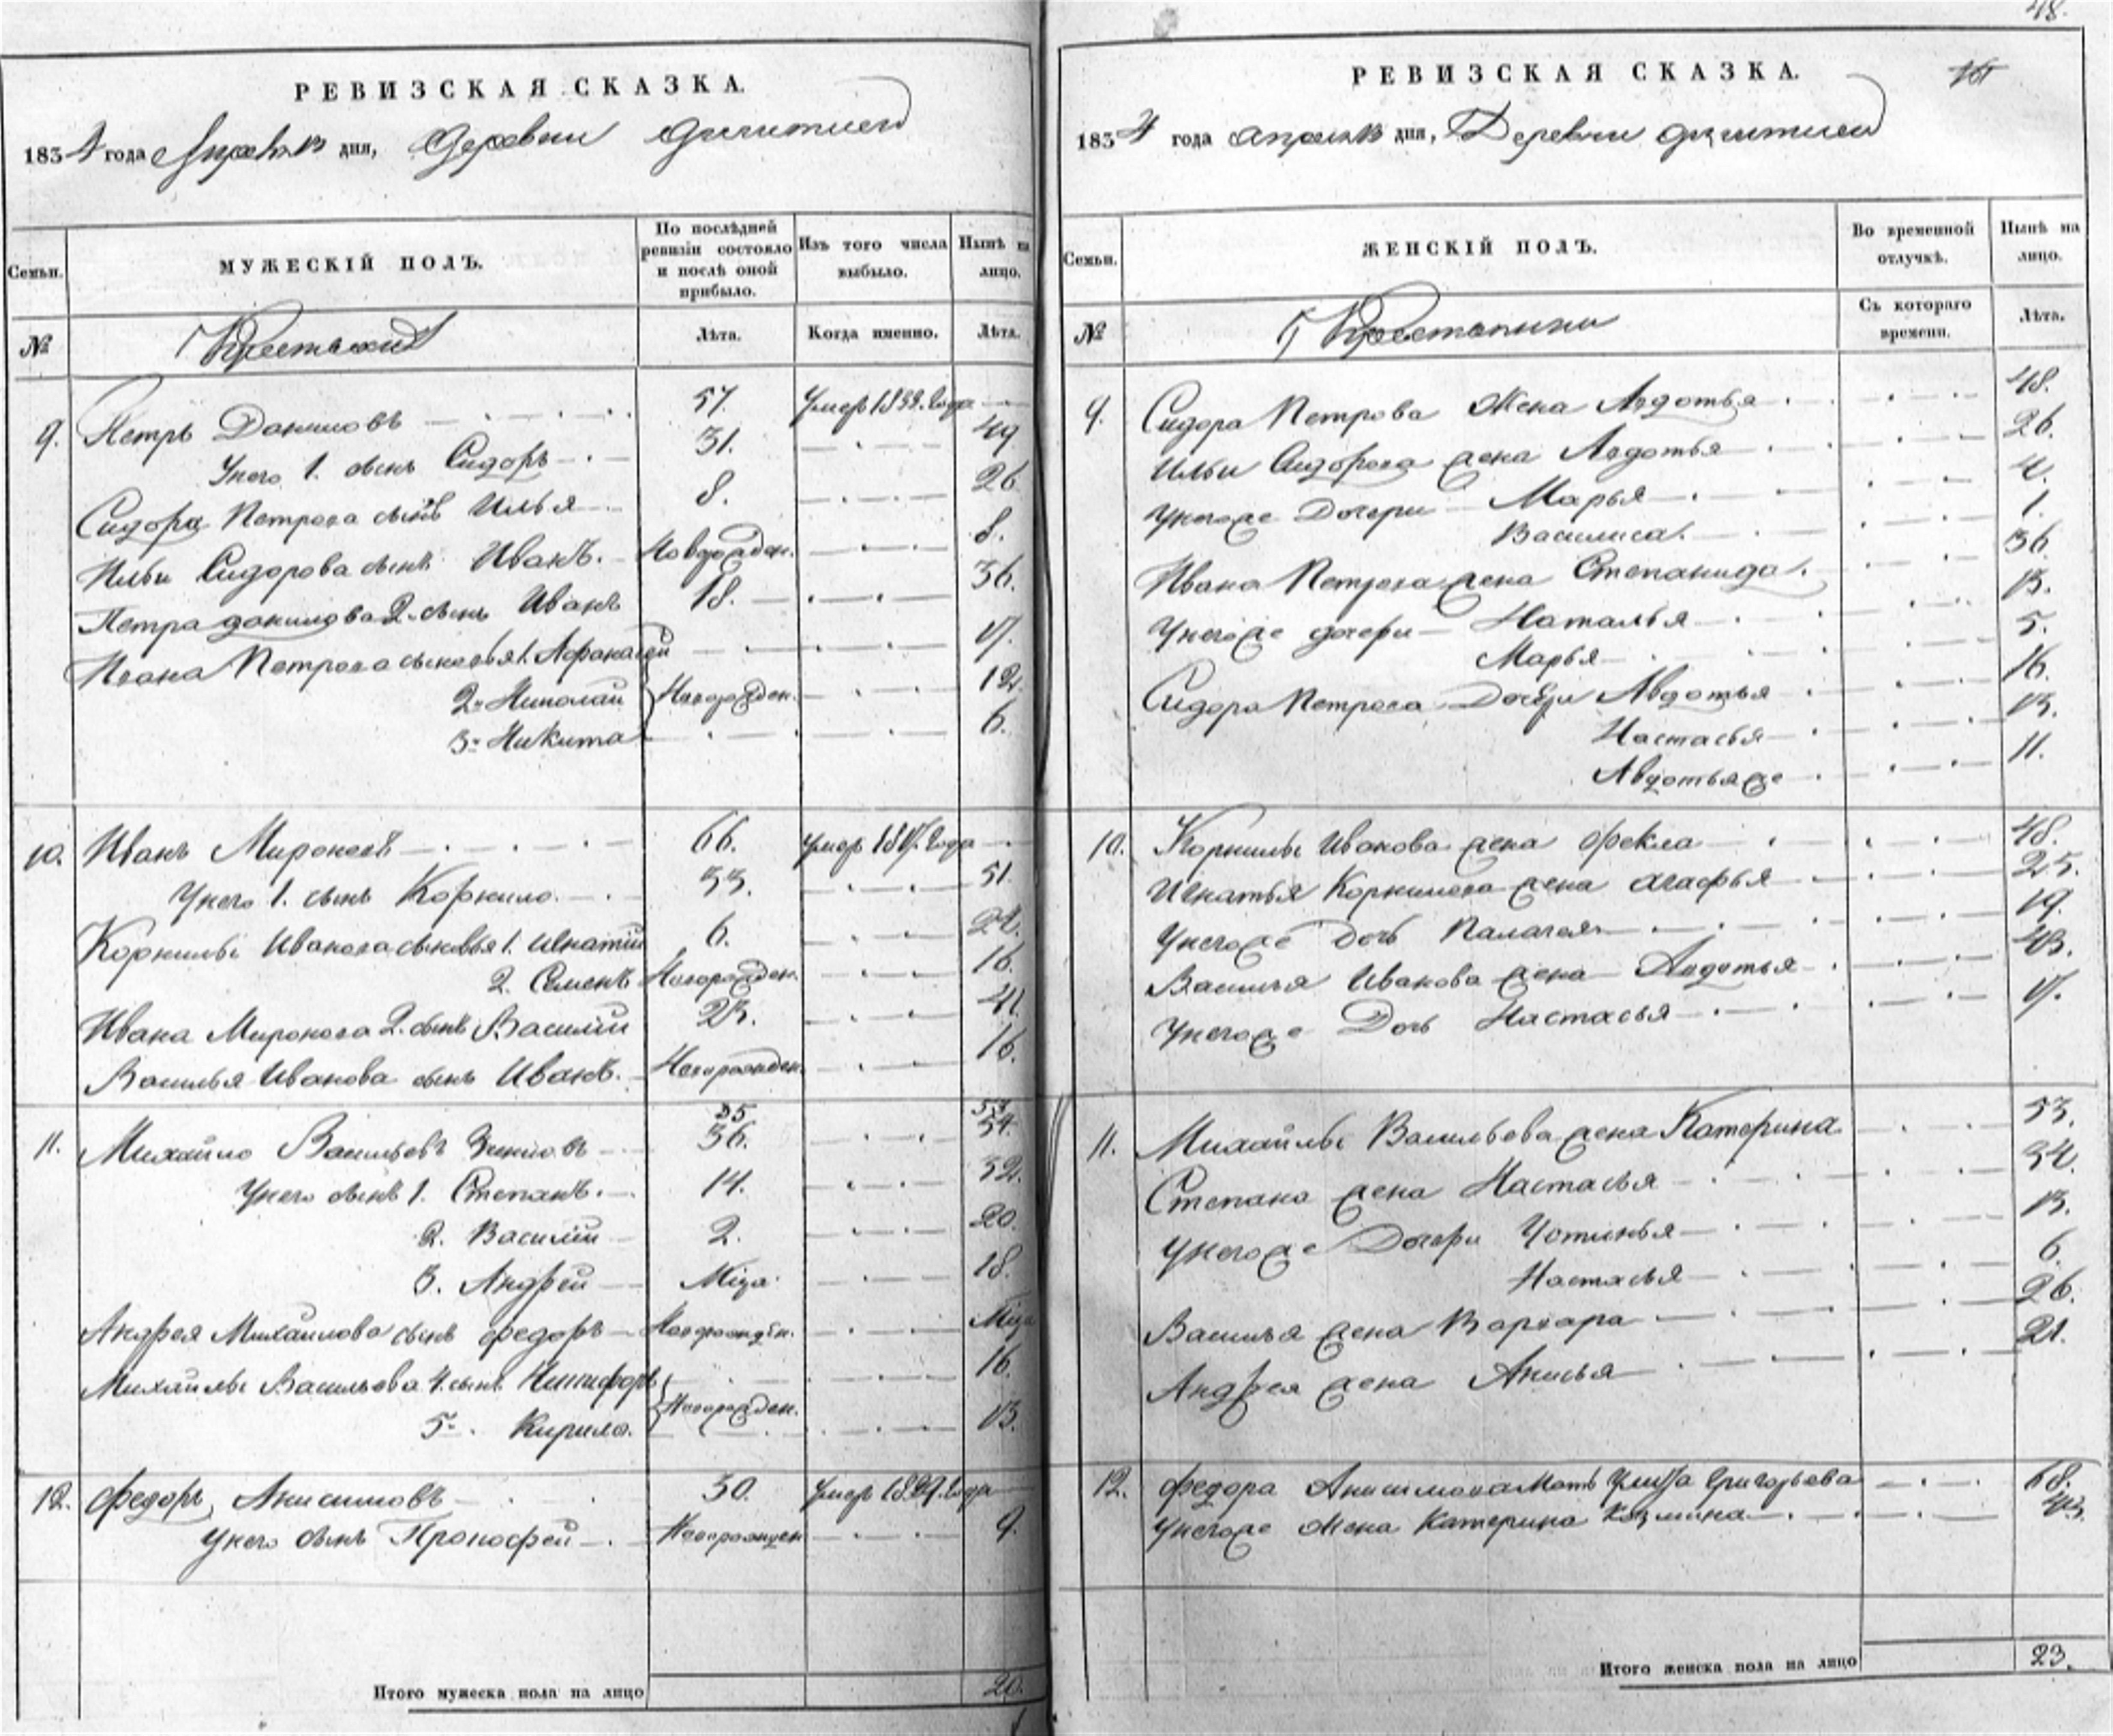 РЕВИЗСКАЯ СКАЗКА.
1834 года Апреля 13 дня, Деревни
Семьи.
МУЖЕСКІЙ ПОЛЪ.
По послѣдней ревизіи состояло и послѣ оной прибыло.
Изъ того числа выбыло.
Нынѣ на лицо.
№
Крестьяне
Лѣта.
Когда именно.
Лѣта.
9. Петръ Даниловъ 57. умеръ 1833. года
Унего 1. сынъ Сидоръ 31. 49
Сидора Петрова сынъ Илья 8. 26
Ильи Сидорова сынъ Иванъ. Новорожден. 8.
Петра Данилова 2. сынъ Иванъ 18. 36.
Ивана Петрова сыновья 1. Афанасей 17.
2. Николай Новорожден. 12.
3. Никита 6.
10. Иванъ Мироновъ 66. умеръ 1817. года
Унего 1. сынъ Корнило. 33. 51.
Корнилы Иванова сыновья 1. Игнатій 6. 24.
2. Семенъ Новорожден. 16.
Ивана Миронова 2. сынъ Василій 23. 41.
Василья Иванова сынъ Иванъ. Новорожден. 16.
35 53
11. Михайло Васильевъ 36. 54.
Унего сынъ 1. Степанъ. 14. 32.
2. Василій 2. 20.
3. Андрей Міца. 18.
Андрея Михайлова сынъ Федоръ Новорожден. Міца
Михайлы Васильева 4. сынъ Никифоръ 16.
5. Кирило. Новорожден. 13.
12. Федоръ Анисимовъ 30. умеръ 1829. года
Унего сынъ Прокофей Новорожден 9.
Итого мужеска пола на лицо 20.
48.
РЕВИЗСКАЯ СКАЗКА.
1834 года апреля 13 дня, Деревни
Семьи.
ЖЕНСКІЙ ПОЛЪ.
Во временной отлучкѣ.
Нынѣ на лицо.
№
Крестьянки
Съ котораго времени.
Лѣта.
9. Сидора Петрова Жена Авдотья 48.
Ильи Сидорова жена Авдотья 26.
Унегоже Дочери Марья 4.
Василиса. 1.
Ивана Петрова жена Степанида. 36
Унегоже дочери Наталья 13.
Марья 5.
Сидора Петрова Дочери Авдотья 16.
Настасья 13.
Авдотьяже 11.
10. Корнилы Иванова жена Фекла 48.
Игнатья Корнилова жена Агафья 25.
Унегоже Дочь Палагея 19.
Василья Иванова жена Авдотья 43.
Унегоже Дочь Настасья 17.
11. Михайлы Васильева жена Катерина 53.
Степана жена Настасья 34.
Унегоже Дочери Устинья 13.
Настасья 6.
Василья жена Варвара 26.
Андрея жена Анисья 21.
12. Федора Анисимова Мать Улита Григорьева 68.
Унегоже Жена Катерина Козмина 43.
Итого женска пола на лицо 23.